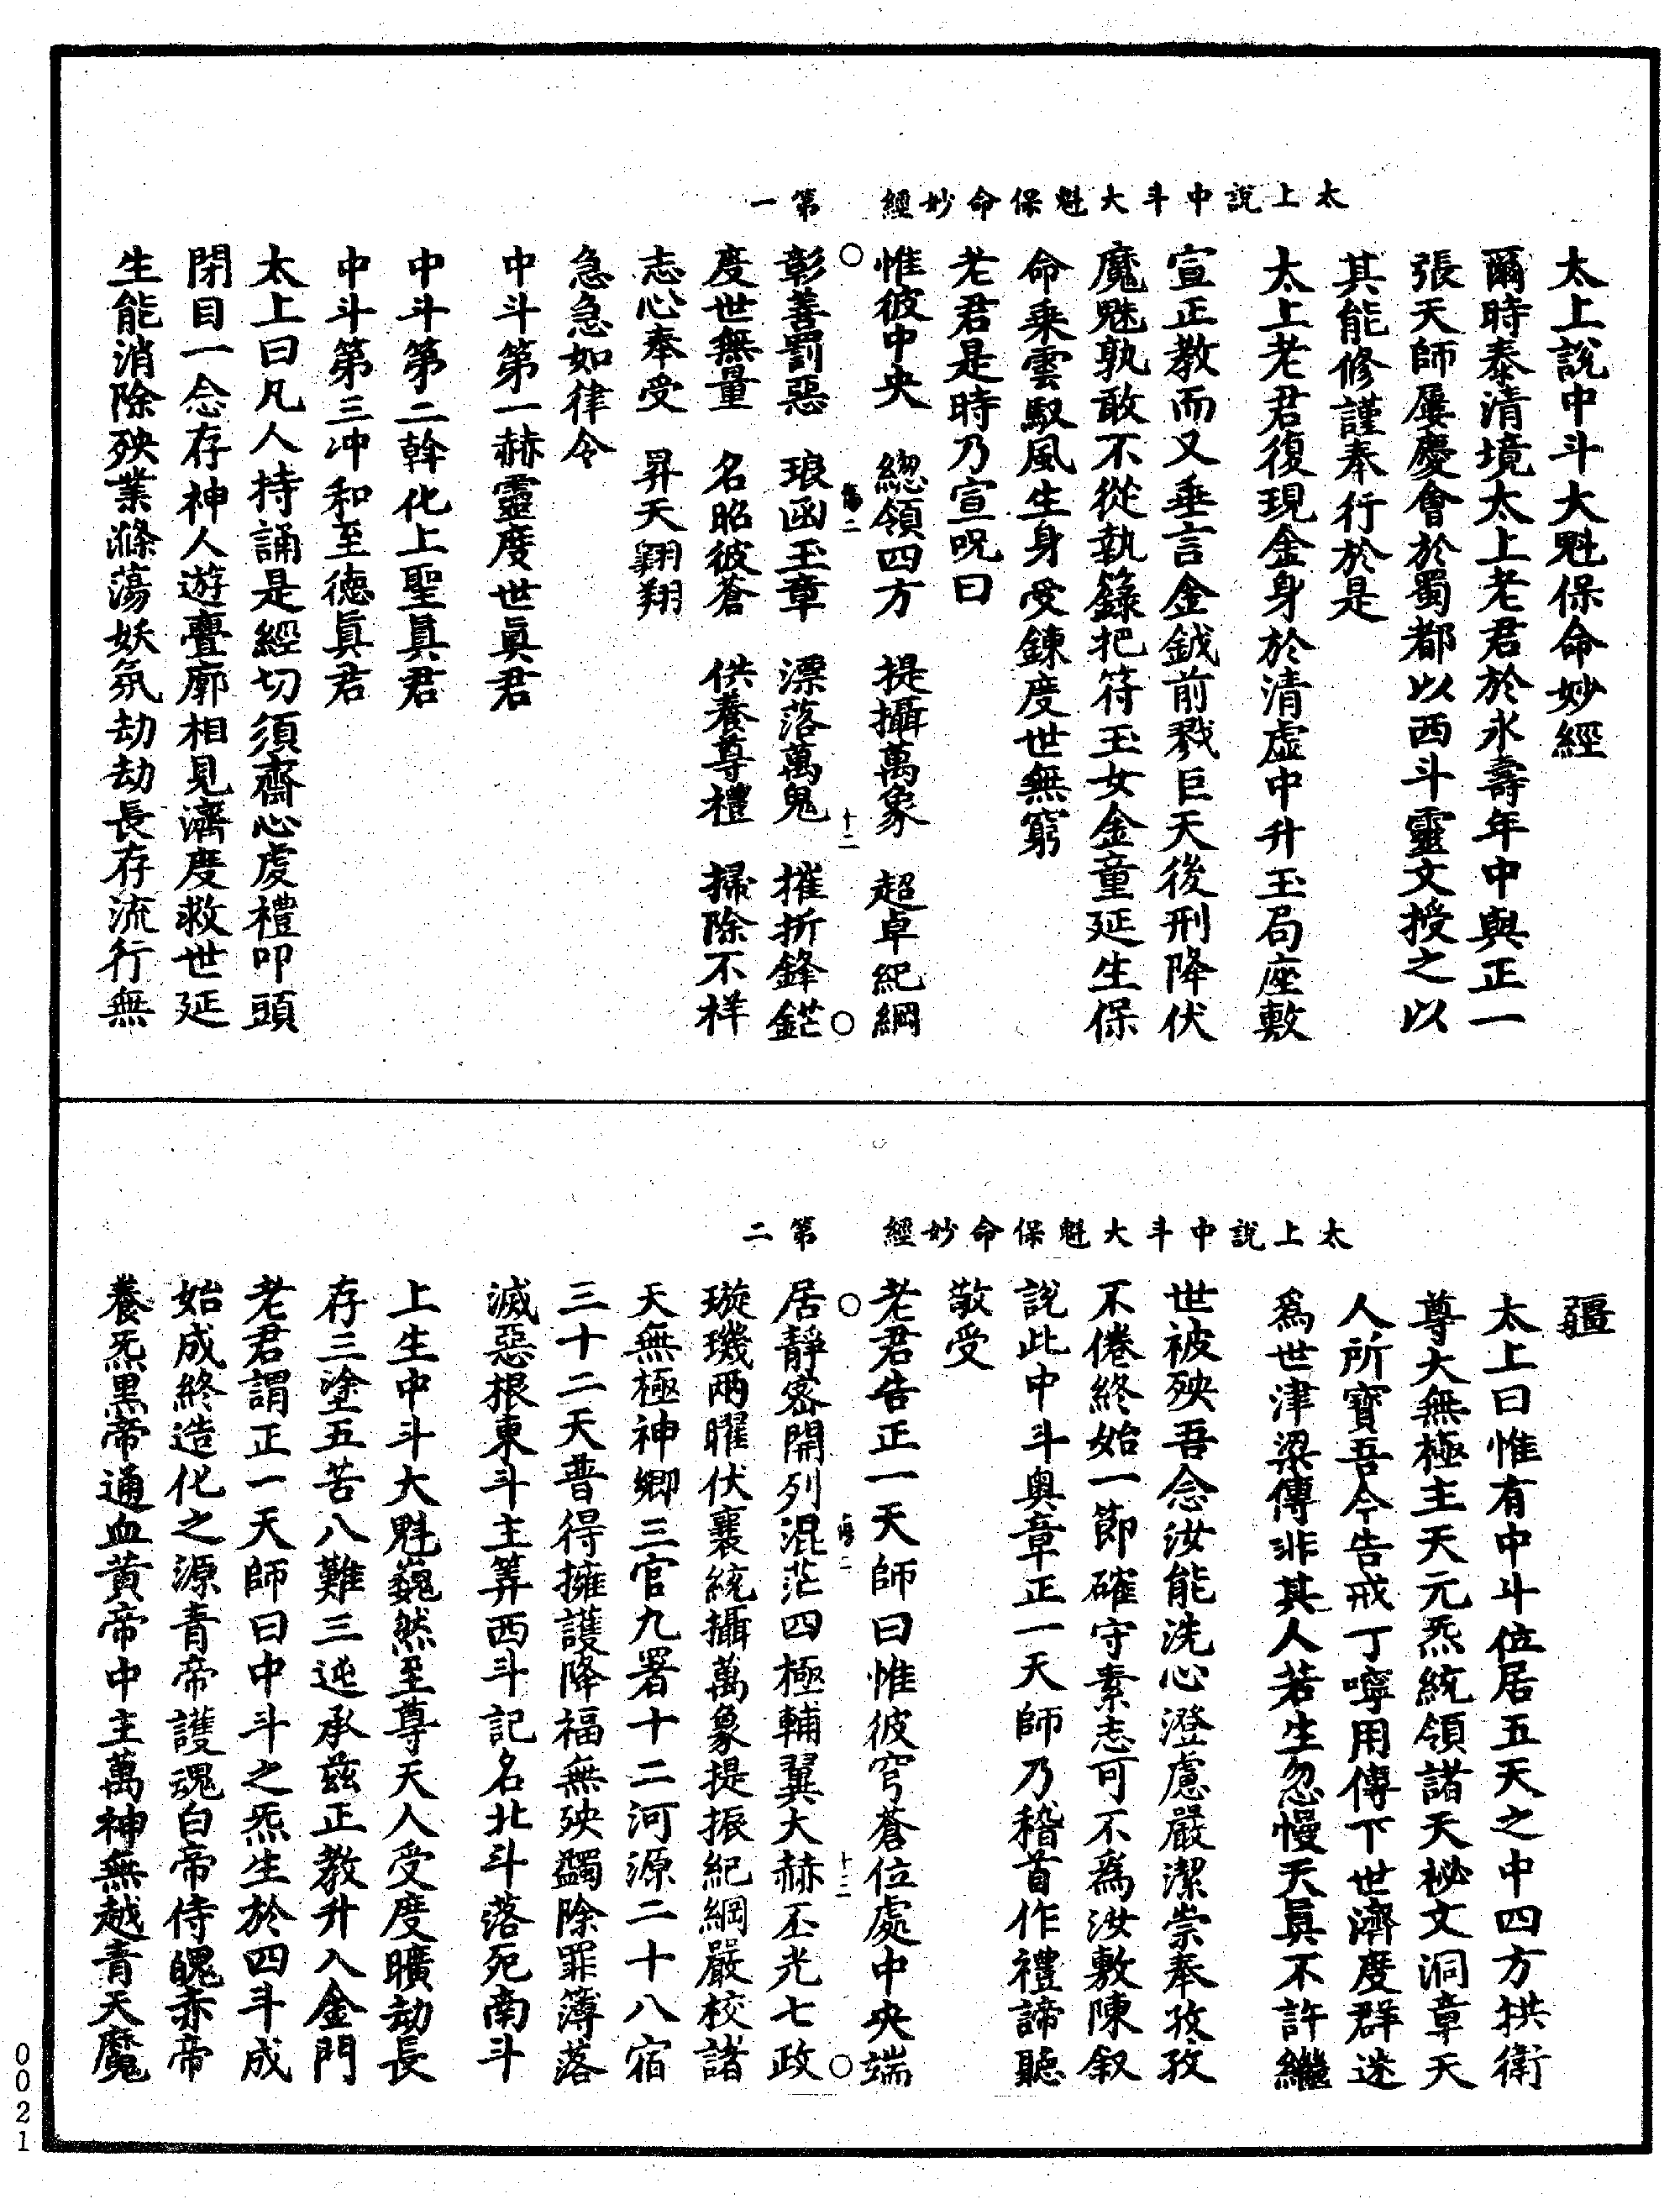 太上說中斗大魁保命妙經　第一
太上說中斗大魁保命妙經
爾時泰清境太上老君於永壽年中與正一
張天師屢慶會於蜀都以西斗靈文授之以
其能修謹奉行於是
太上老君復現金身於清虛中升玉局座敷
宣正教而又垂言金鉞前戮巨天後刑降伏
魔魅孰敢不從執籙把符玉女金童延生保
命乘雲馭風生身受鍊度世無窮
老君是時乃宣呪曰
惟彼中央　緫領四方　提攝萬象　超卓紀綱
○　二　十二　○
彰善罰惡　琅函玉章　漂落萬鬼　摧折鋒鋩
度世無量　名昭彼蒼　供養尊禮　掃除不祥
志心奉受　昇天翺翔
急急如律令
中斗第一赫靈度世眞君
中斗第二幹化上聖眞君
中斗第三冲和至德眞君
太上曰凡人持誦是經切須齋心虔禮叩頭
閉目一念存神人遊寥廓相見濟度救世延
生能消除殃業滌蕩妖氛劫劫長存流行無
太上說中斗大魁保命妙經　第二
疆
太上曰惟有中斗位居五天之中四方拱衛
尊大無極主天元炁統領諸天祕文洞章天
人所寶吾今告戒丁嚀用傳下世濟度群迷
爲世津梁傳非其人若生忽慢天眞不許繼
世被殃吾念汝能洗心澄慮嚴潔崇奉孜孜
不倦終始一節確守素志可不爲汝敷陳叙
說此中斗奥章正一天師乃稽首作禮諦聽
敬受
老君告正一天師曰惟彼穹蒼位處中央端
○　二　十三　○
居靜密開列混茫四極輔翼大赫丕光七政
璇璣兩曜伏襄統攝萬象提振紀綱嚴校諸
天無極神鄉三官九署十二河源二十八宿
三十二天普得擁護降福無殃蠲除罪簿落
滅惡根東斗主筭西斗記名北斗落死南斗
上生中斗大魁巍然至尊天人受度曠劫長
存三塗五苦八難三迍承兹正教升入金門
老君謂正一天師曰中斗之炁生於四斗成
始成終造化之源青帝護魂白帝侍魄赤帝
養炁黒帝通血黄帝中主萬神無越青天魔
0021